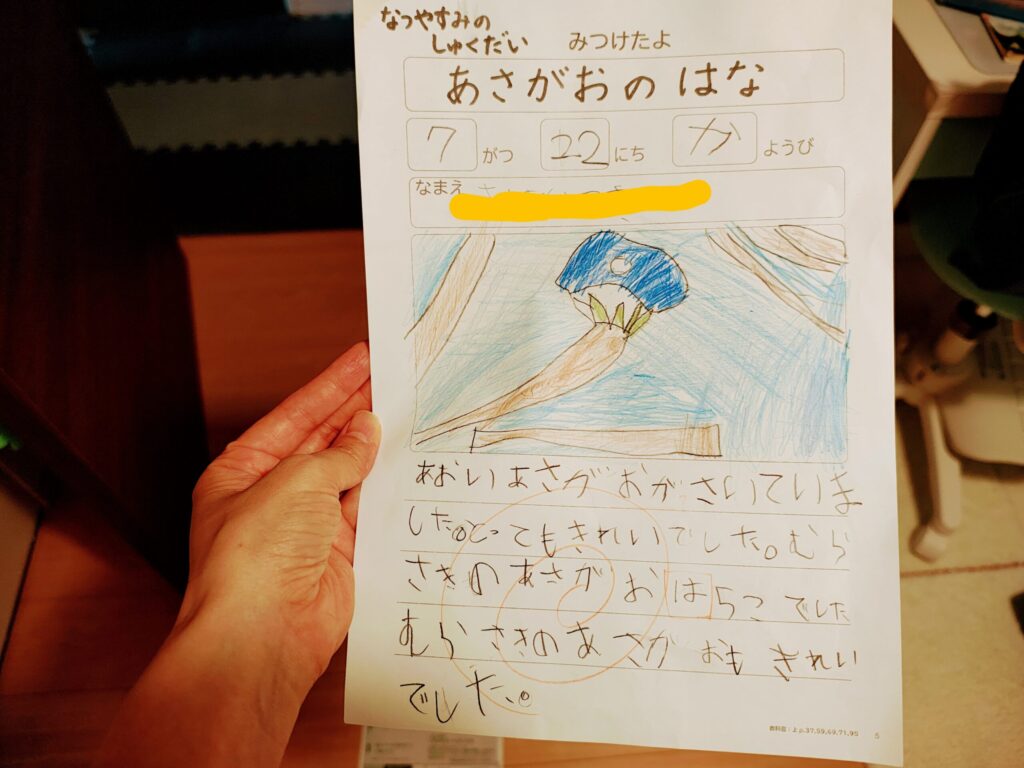 なつやすみの
しゅくだい
みつけたよ
あさがおのはな
7がつ 22にち かようび
なまえ
あおいあさがおがさいていま
した。とってもきれいでした。むら
さきのあさがおは5こでした
むらさきのあさがおもきれい
でした。
教科書:上p.37,59,69,71,95 5